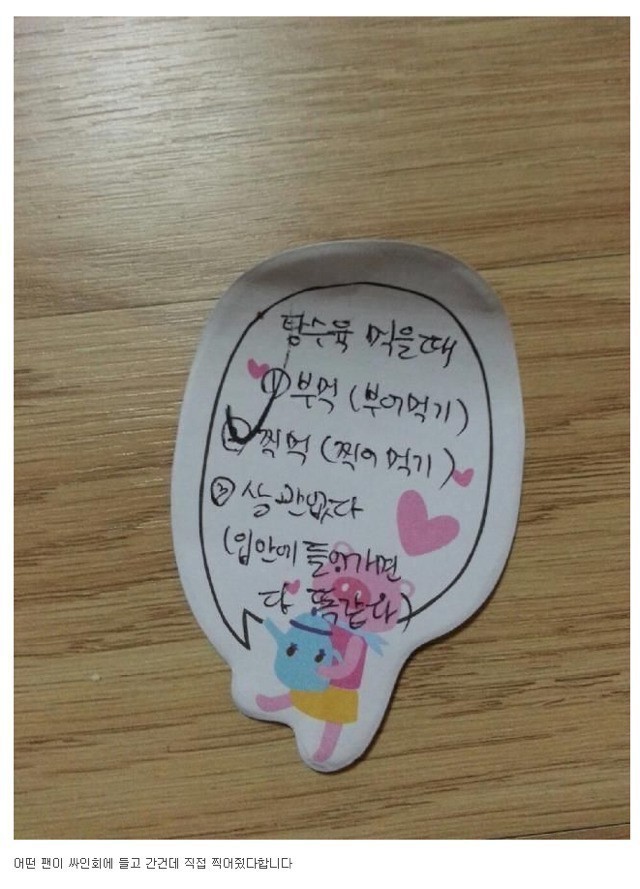 탕수육 먹을때
① 부먹 (부어먹기)
② 찍먹 (찍어 먹기)
③ 상관없다
(입안에 들어가면
다 똑같다)
어떤 팬이 싸인회에 들고 간건데 직접 찍어줬다합니다